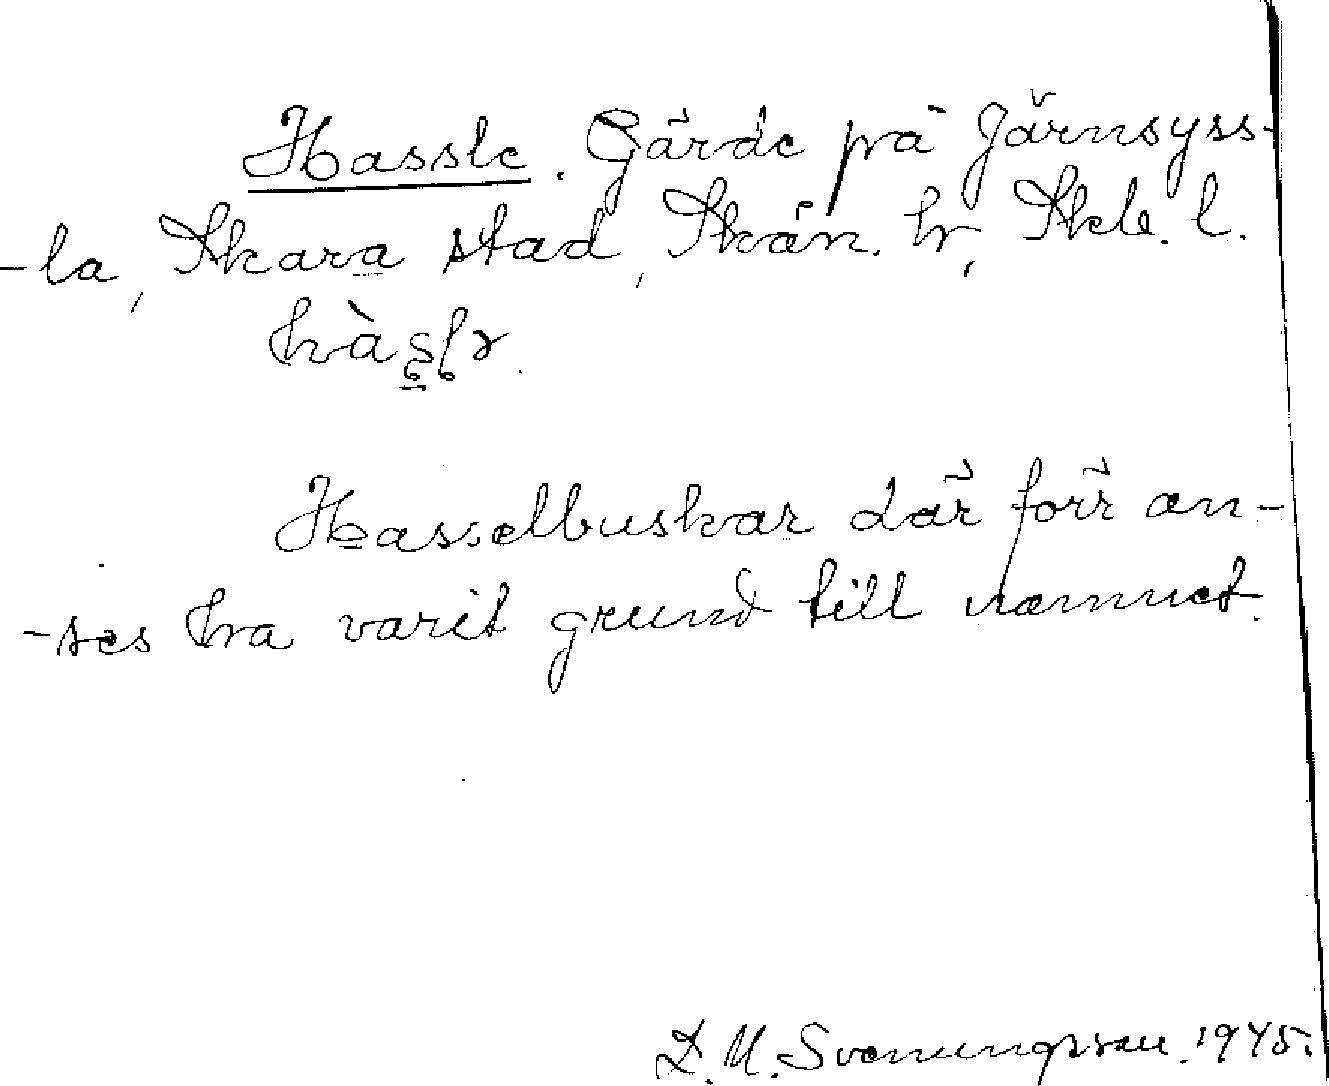 Hassle. Gärde på Järnsyss-
-la, Skara stad, Skån. hr, Skb. l.
Hasselbuskar där förr an-
-ses ha varit grund till namnet.
D. M. Svenungsson. 1945.